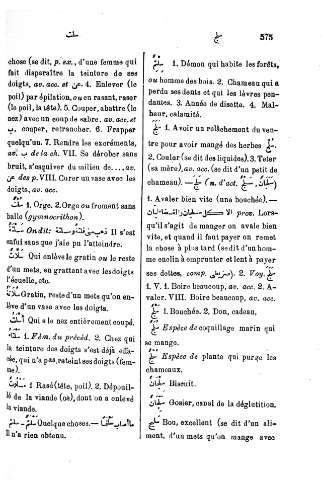 سلت
سلج
575
chose (se dit, p. ex., d'une femme qui
fait disparaître la teinture de ses
doigts, av. acc. et عن. 4. Enlever (le
poil) par épilation, ou en rasant, raser
(le poil, la tête). 5. Couper, abattre (le
nez) avec un coup de sabre, av. acc. et
ب, couper, retrancher. 6. Frapper
quelqu'un. 7. Rendre les excréments,
av. ب de la ch. VII. Se dérober sans
bruit, s'esquiver du milieu de...., av.
من des p. VIII. Ourer un vase avec les
doigts, av. acc.
1. Orge. 2. Orge ou avoine sans
balle (gymnocrithon).
Ondit: Il s'est
enfui sans que j'aie pu l'atteindre.
Qui enlève le gratin ou le reste
d'un mets, en grattant avec les doigts
l'écuelle, etc.
Gratin, reste d'un mets qu'on en-
lève d'un vase avec les doigts.
Qui a le nez entièrement coupé.
1. Fém. du précéd. 2. Chez qui
la teinture des doigts s'est déjà effa-
cée, qui n'a pas reteint ses doigts (fem-
me).
1. Rasé (tête, poil). 2. Dépouil-
lé de la viande (os), dont on a enlevé
la viande.
Quelque choses.—
Il n'a rien obtenu.
1. Démon qui habite les forêts,
ou homme des bois. 2. Chameau qui a
perdu ses dents et qui les lèvres pen-
dantes. 3. Année de disette. 4. Mal-
heur, calamité.
سلج 1. Avoir un relâchement du ven-
tre pour avoir mangé des herbes
2. Couler (se dit des liquides). 3. Teter
(sa mère), av. acc. (se dit d'un petit de
chameau). — (n. d'act.
1. Avaler bien vite (une bouchée).—
prov. Lors-
qu'il s'agit de manger on avale bien
vite, et quand il faut payer on remet
la chose à plus tard (se dit d'un hom-
me enclin à emprunter et lent à payer
ses dettes, comp. 2. Voy.
1. V. 1. Boire beaucoup, av. acc. 2. A-
valer. VIII. Boire beaucoup, av. acc.
1. Bouchée. 2. Don, cadeau.
Espèce de coquillage marin qui
se mange.
Espèce de plante qui purge les
chameaux.
Biscuit.
Gosier, canal de la déglutition.
Bon, excellent (se dit d'un ali-
ment, d'un mets qu'on mange avec